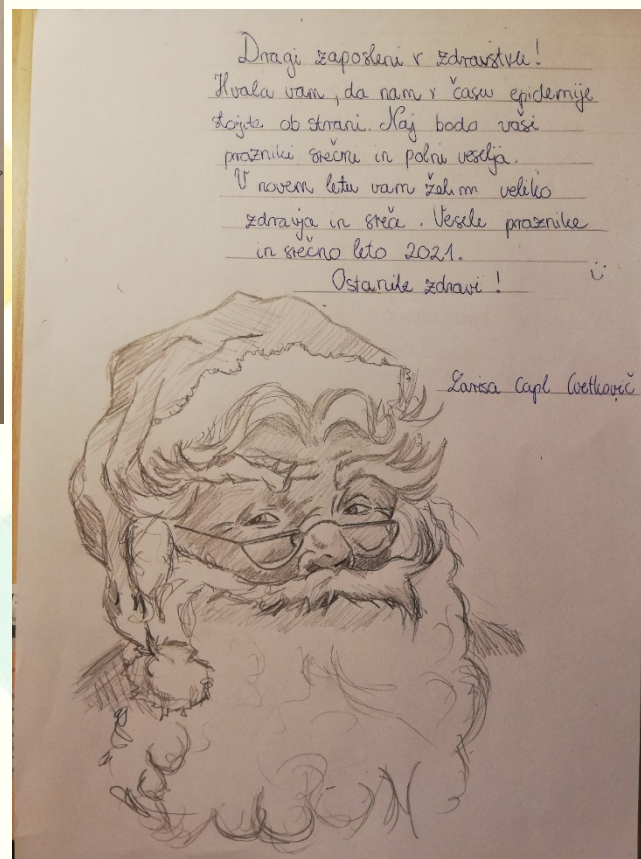 Dragi zaposleni v zdravstvu!
Hvala vam, da nam v času epidemije
stojite ob strani. Naj bodo vaši
prazniki srečni in polni veselja.
V novem letu vam želim veliko
zdravja in sreče. Vesele praznike
in srečno leto 2021.
Ostanite zdravi!
Larisa Capl Cvetkovič